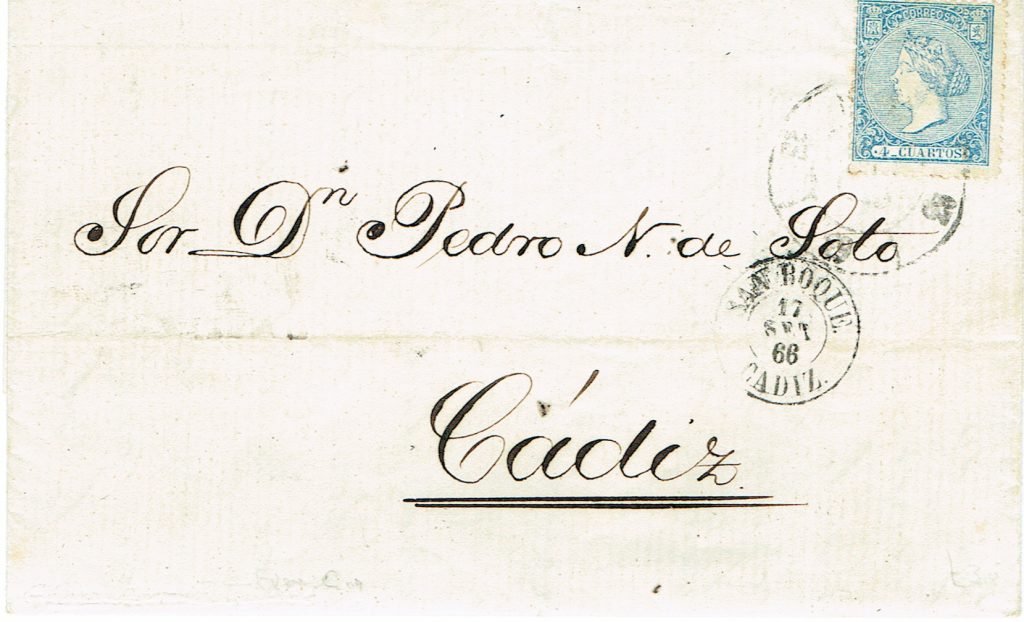 CORREOS
4 CUARTOS
Sor. Dn Pedro N. de Soto
SAN ROQUE
17
SET
66
CADIZ.
Cádiz.